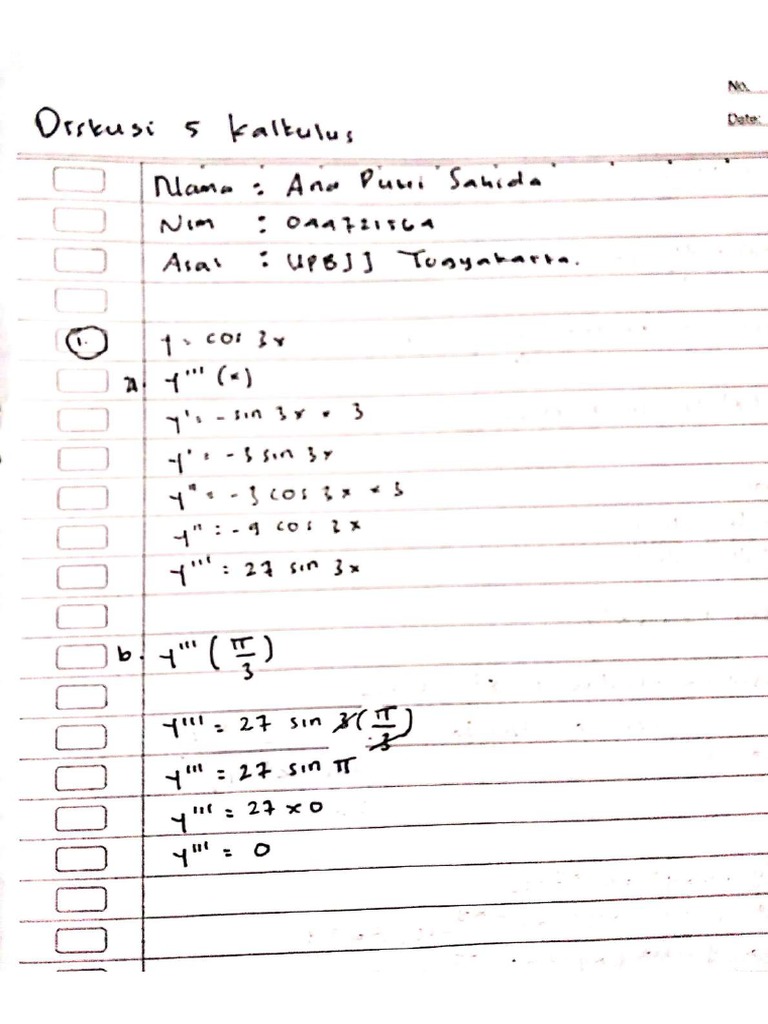 No.
Diskusi 5 Kalkulus
Date:
Nama : Ana Puwi Sahida
Nim : 044721564
Asal : UPBJJ Yogyakarta.
1. y = cos 3x
a. y''' (x)
y' = -sin 3x • 3
y' = -3 sin 3x
y'' = -3 cos 3x • 3
y'' = -9 cos 3x
y''' = 27 sin 3x
b. y''' (π/3)
y''' = 27 sin 3(π/3)
y''' = 27 sin π
y''' = 27 x 0
y''' = 0